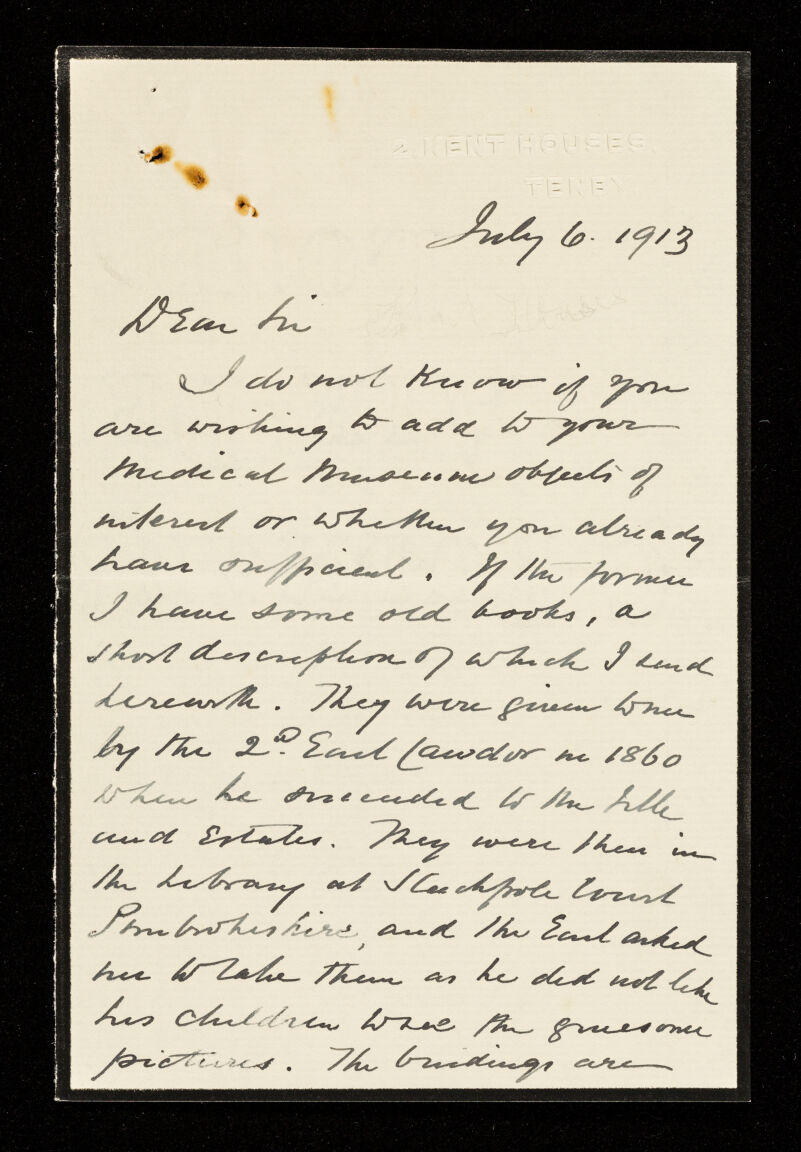 2. KENT HOUSES.
TENBY
July 6. 1913
Dear Sir
I do not know if you
are wishing to add to your
Medical Museum objects of
interest or whether you already
have sufficient. If the former
I have some old books, a
short description of which I send
herewith. They were given to me
by the 2nd. Earl Cawdor in 1860
when he succeeded to the title
and Estates. They were then in
the Library at Stackpole Court
Pembrokeshire, and the Earl asked
me to take them as he did not like
his children to see the gruesome
pictures. The bindings are